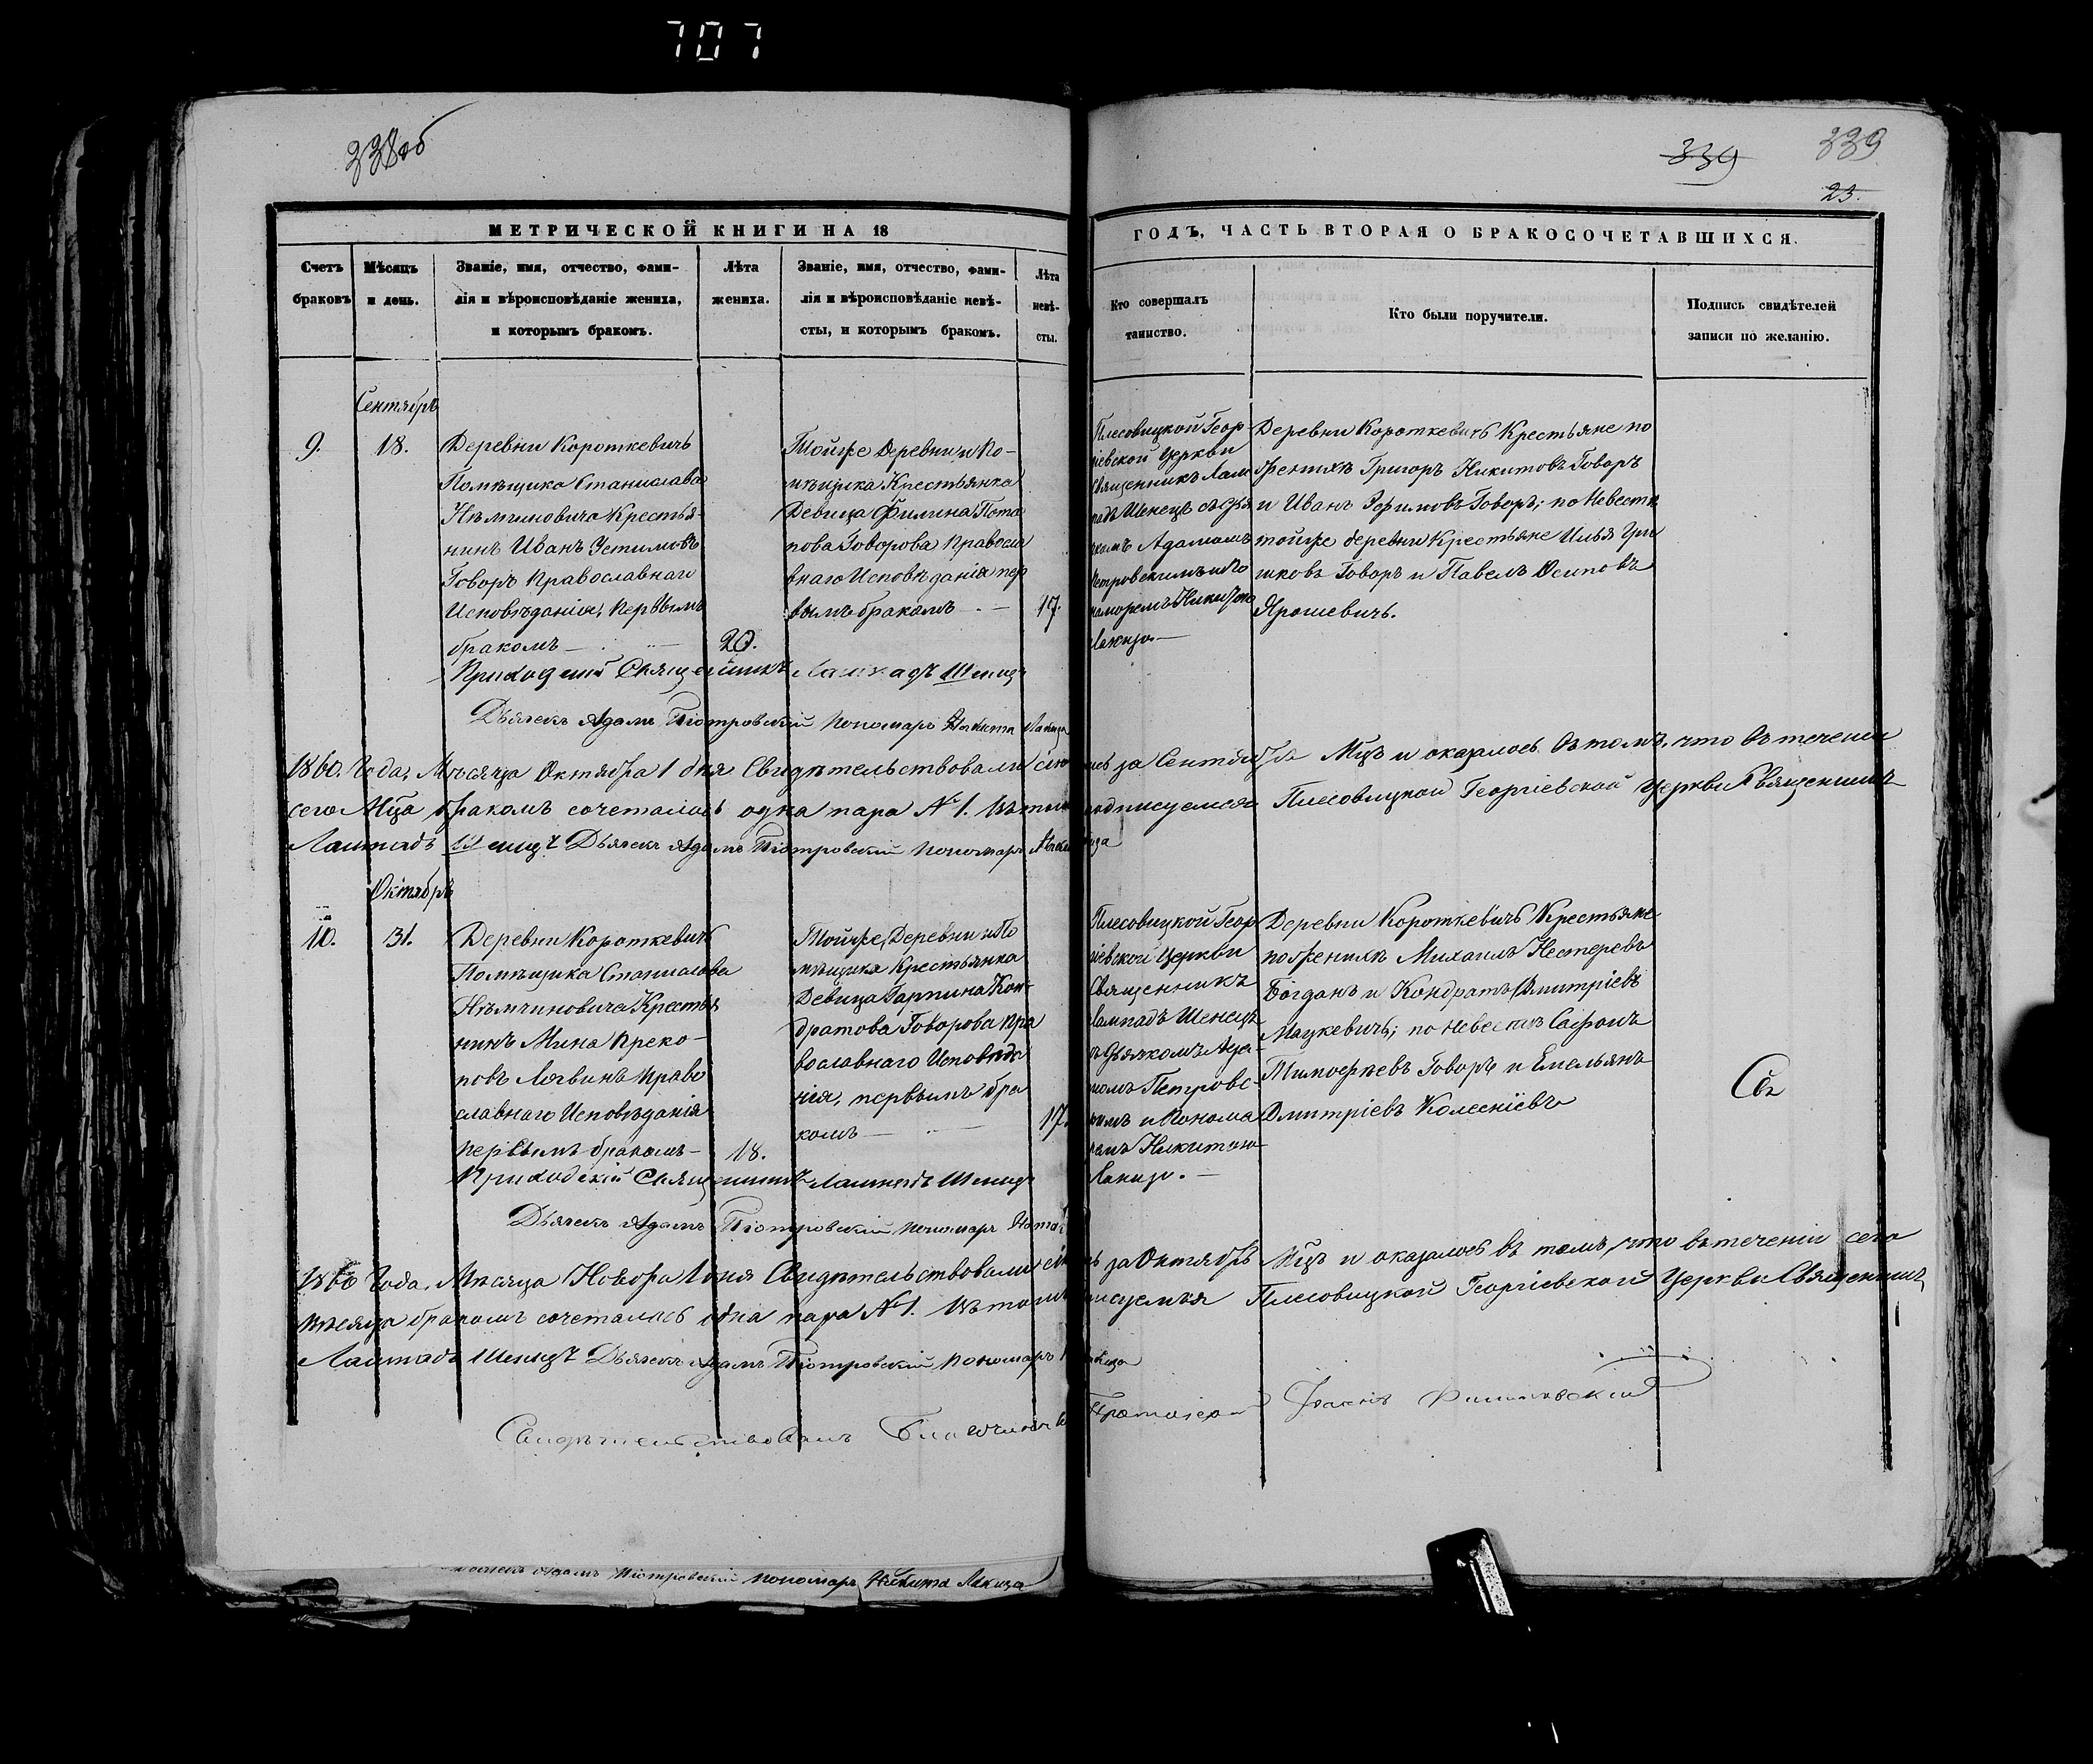 707
338об
339
339
23.
МЕТРИЧЕСКОЙ КНИГИ НА 18
ГОДЪ, ЧАСТЬ ВТОРАЯ О БРАКОСОЧЕТАВШИХСЯ.
Счетъ
браковъ
Мѣсяцъ
и день.
Званіе, имя, отчество, фами-
лія и вѣроисповѣданіе жениха,
и которымъ бракомъ.
Лѣта
жениха.
Званіе, имя, отчество, фами-
лія и вѣроисповѣданіе невѣ-
сты, и которымъ бракомъ.
Лѣта
невѣ-
сты.
Кто совершалъ
таинство.
Кто были поручители.
Подпись свидѣтелей
записи по желанію.
Сентябрь
9.
18.
Деревни Короткевичь
Помѣщика Станислава
Нѣмчиновича Крестья-
нинъ Иванъ Устимовъ
Говоръ Православнаго
Исповѣданія, первымъ
бракомъ —
20.
Тойже Деревни и По-
мѣщика Крестьянка
Девица Филина Пота
пова Говорова Правосла
внаго Исповѣданія пер
вымъ бракомъ —
17.
Плесовицкой Геор-
гіевской Церкви
Священникъ Лам
падъ Шенецъ съ Дья
чкомъ Адамомъ
Петровскимъ и По
номоремъ Никитою
Лакизо. —
Деревни Короткевичь Крестьяне по
женихѣ Григоръ Никитовъ Говоръ
и Иванъ Ефимовъ Говоръ; по Невестѣ
тойже деревни Крестьяне Илья Гри
шковъ Говоръ и Павелъ Осиповъ
Ярошевичь.
Приходскій Священникъ Лампадъ Шенецъ
Дьячекъ Адамъ Піотровскій пономарь Никита Лакиза
1860. Года, Мѣсяца Октября 1 дня Свидѣтельствовали сію за Сентябрь Мцъ и оказалось въ томъ, что въ теченіи
сего Мца бракомъ сочеталась одна пара № 1. Въ томъ подписуемся Плесовицкой Георгіевской Церкви Священникъ
Лампадъ Шенецъ Дьячекъ Адамъ Піотровскій пономарь
Октябрь
10.
31.
Деревни Короткевичь
Помѣщика Станислава
Нѣмчиновича Крестья
нинъ Мина Преко-
повъ Лявинъ Право
славнаго Исповѣданія
первымъ бракомъ —
18.
Тойже Деревни и По
мѣщика Крестьянка
Девица Гарпина Кон-
дратова Говорова Пра
вославнаго Исповѣда
нія, первымъ бра
комъ —
17.
Плесовицкой Геор
гіевской Церкви
Священникъ
Лампадъ Шенецъ
съ Дьячкомъ Ада-
момъ Петровс-
кимъ и Понома
ремъ Никитою
Лакизо. —
Деревни Короткевичь Крестьяне
по женихѣ Михаилъ Нестеровъ
Богданъ и Кондратъ Дмитріевъ
Мацкевичь; по невестѣ Сафонъ
Тимофѣевъ Говоръ и Емельянъ
Дмитріевъ Колесніевъ
Приходскій Священникъ Лампадъ Шенецъ
Дьячекъ Адамъ Піотровскій пономарь
1860 Года. Мѣсяца Ноября 1 дня Свидѣтельствовали сію за Октябрь Мцъ и оказалось въ томъ, что въ теченіи сего
мѣсяца бракомъ сочеталась одна пара № 1. Въ томъ Плесовицкой Георгіевской Церкви Священникъ
Лампадъ Шенецъ Дьячекъ Адамъ Піотровскій пономарь
Свидѣтельствовалъ Благочинный Протоіерей Іоаннъ
Дьячекъ Адамъ Піотровскій пономарь Никита Лакиза